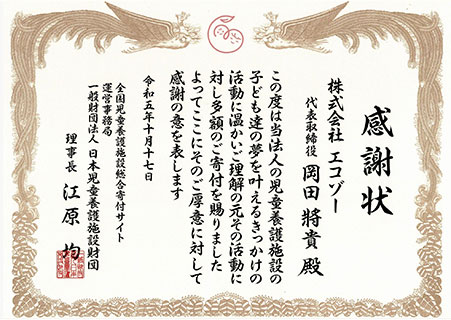 感謝状
株式会社 エコゾー
代表取締役 岡田 將貴 殿
この度は当法人の児童養護施設の
子ども達の夢を叶えるきっかけの
活動に温かいご理解の元その活動に
対し多額のご寄付を賜りました
よってここにそのご厚意に対して
感謝の意を表します
令和五年十月十七日
全国児童養護施設総合寄付サイト
運営事務局
一般財団法人 日本児童養護施設財団
理事長 江原 均